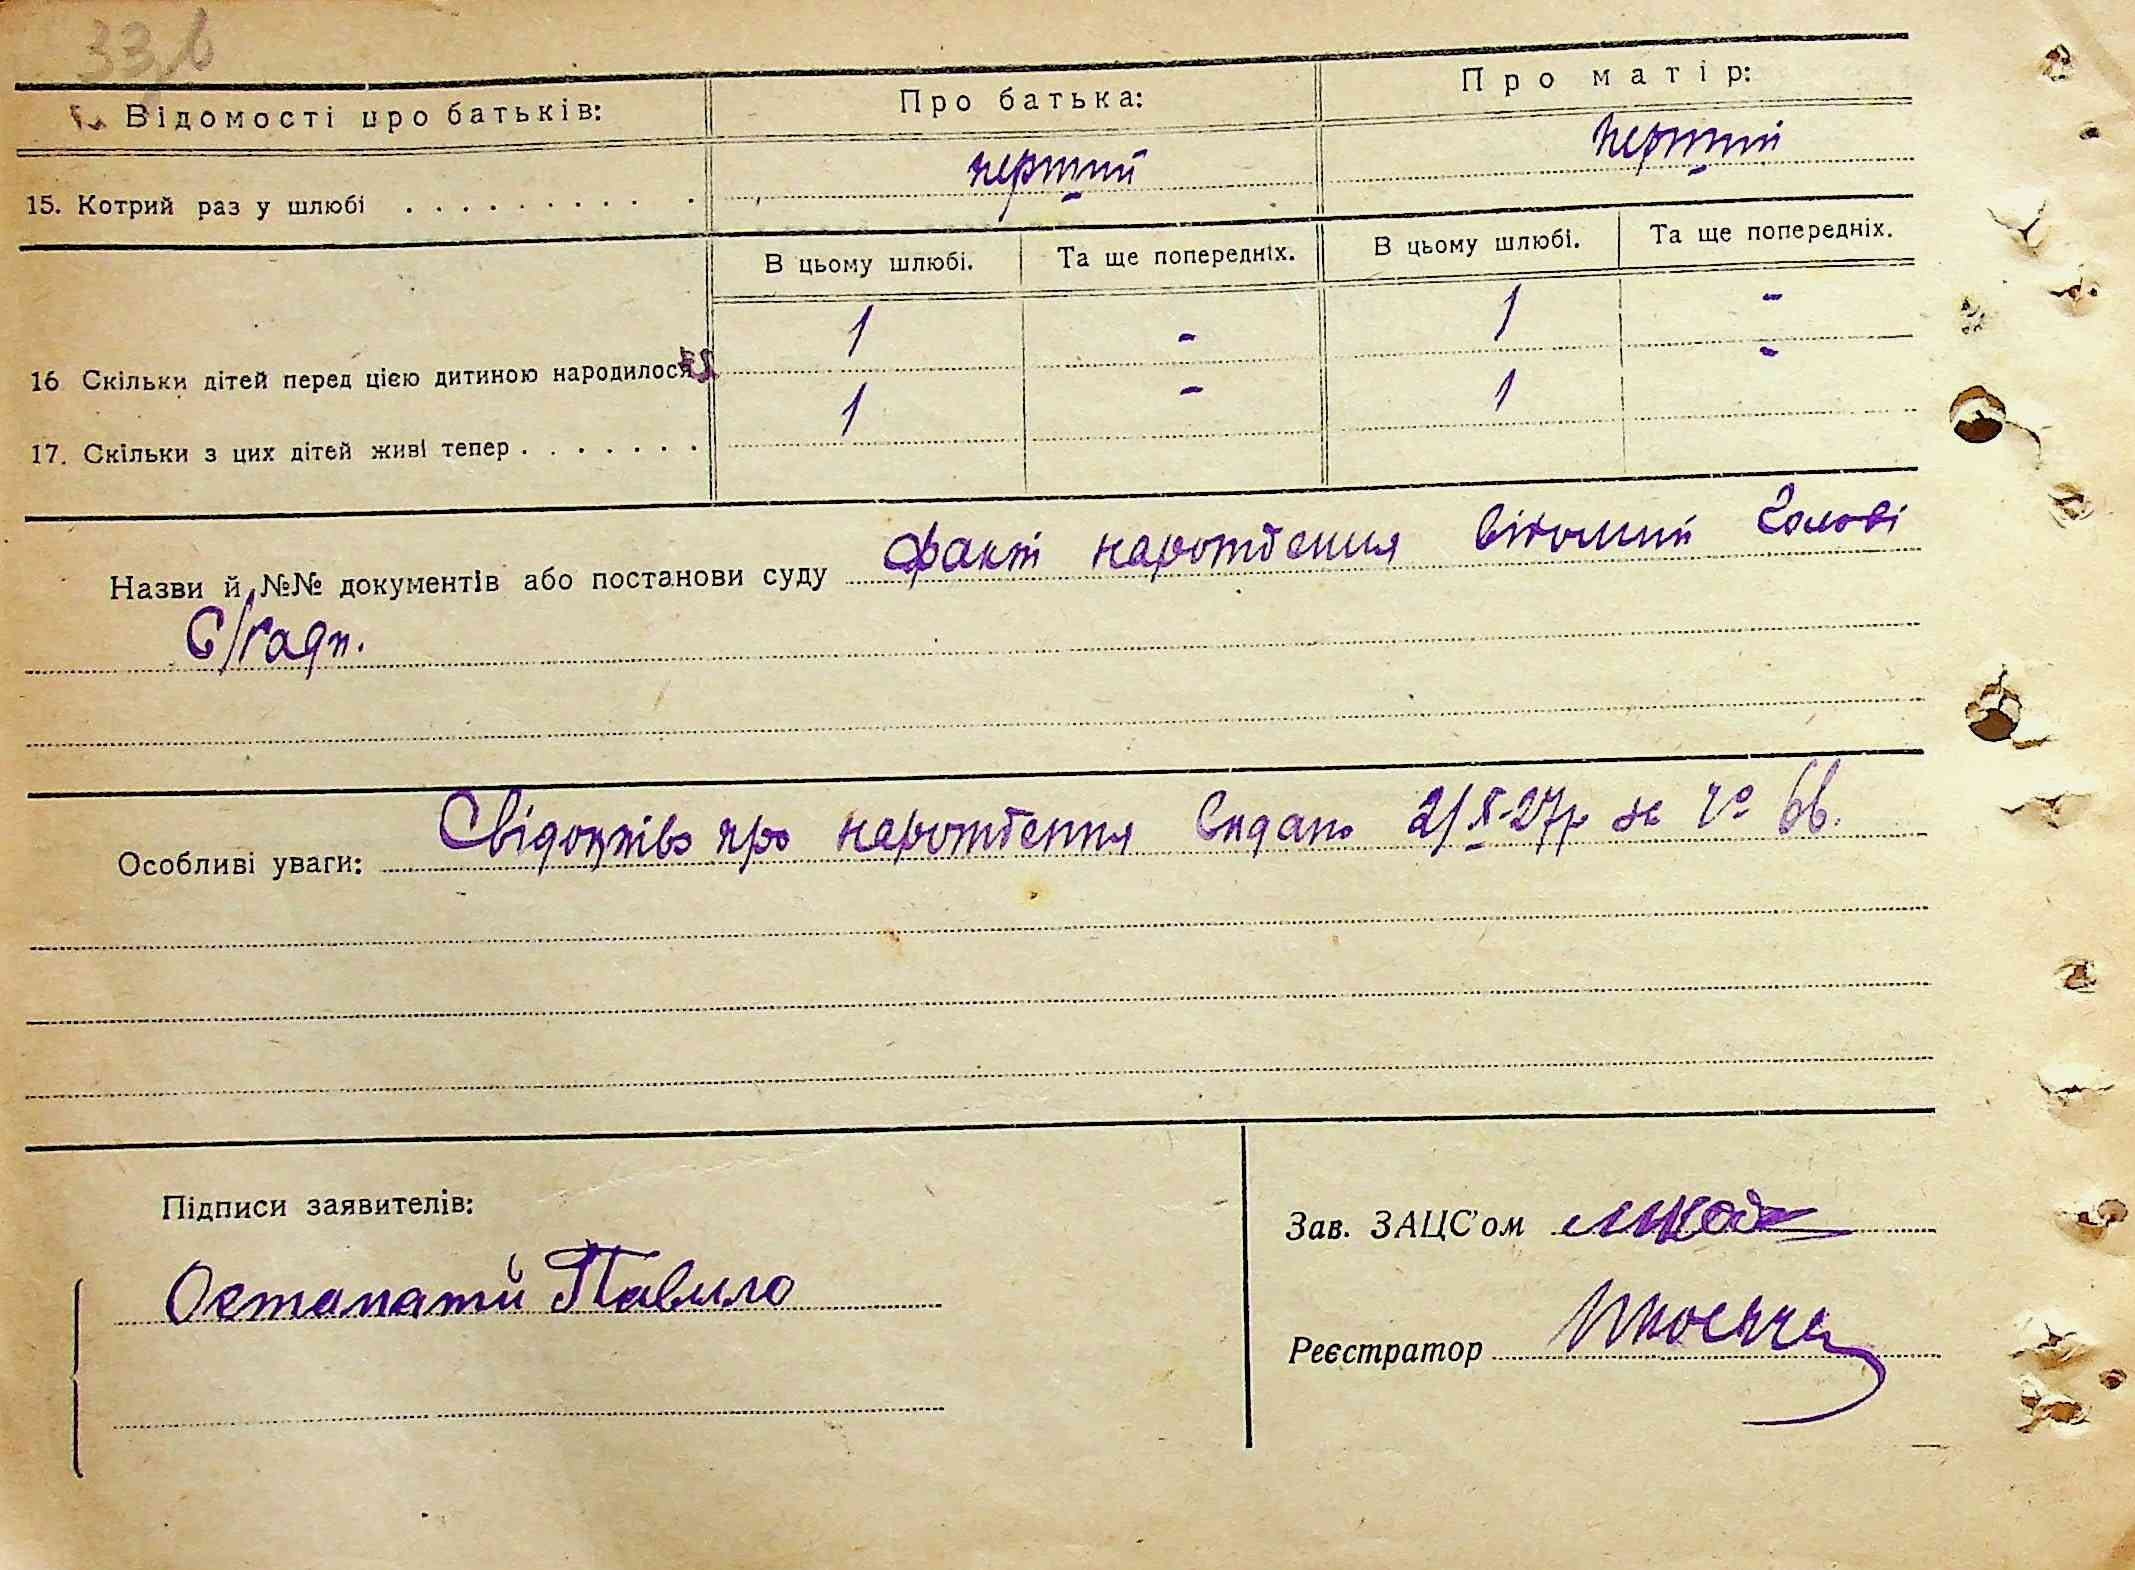 33
Відомості про батьків: Про батька: Про матір:
15. Котрий раз у шлюбі . . . . . . . . . . перший перший
В цьому шлюбі. Та ще попередніх. В цьому шлюбі. Та ще попередніх.
16 Скільки дітей перед цією дитиною народилося 1 - 1 -
17. Скільки з цих дітей живі тепер . . . . . . . 1 - 1 -
Назви й №№ документів або постанови суду факт нарождения відомий Голові
С/радп.
Особливі уваги: Свідоцтво про нарождення видано 2/X-27р за № 66.
Підписи заявителів:
Зав. ЗАЦС'ом
Остапатий Павло
Реєстратор